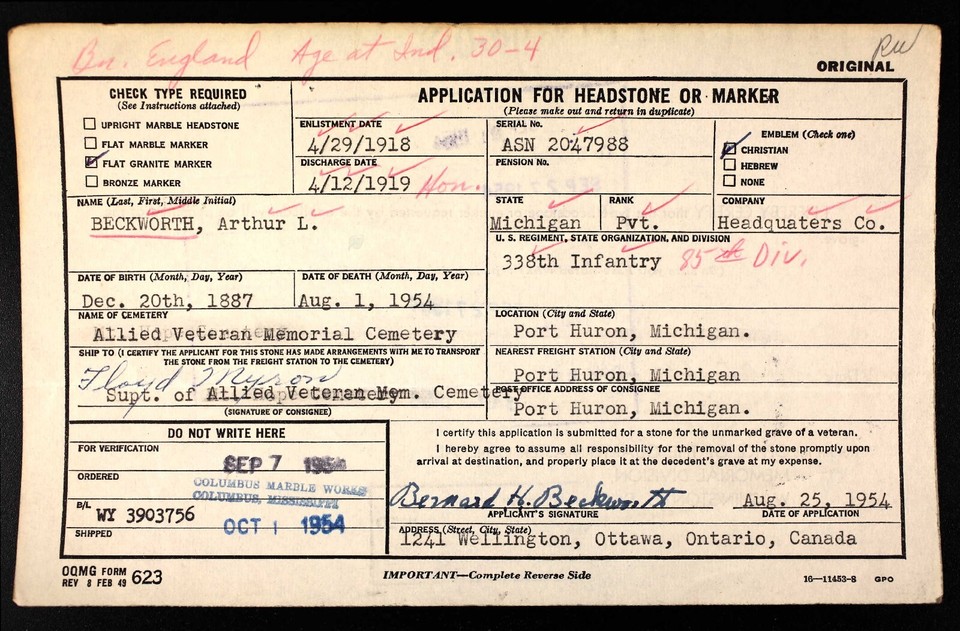 Bn. England Age at Ind. 30-4
RW
ORIGINAL
CHECK TYPE REQUIRED
(See Instructions attached)
UPRIGHT MARBLE HEADSTONE
FLAT MARBLE MARKER
FLAT GRANITE MARKER
BRONZE MARKER
APPLICATION FOR HEADSTONE OR MARKER
(Please make out and return in duplicate)
ENLISTMENT DATE
4/29/1918
DISCHARGE DATE
4/12/1919 Hon.
SERIAL No.
ASN 2047988
PENSION No.
EMBLEM (Check one)
CHRISTIAN
HEBREW
NONE
NAME (Last, First, Middle Initial)
BECKWORTH, Arthur L.
STATE
Michigan
RANK
Pvt.
COMPANY
Headquaters Co.
U. S. REGIMENT, STATE ORGANIZATION, AND DIVISION
338th Infantry 85th Div.
DATE OF BIRTH (Month, Day, Year)
Dec. 20th, 1887
DATE OF DEATH (Month, Day, Year)
Aug. 1, 1954
NAME OF CEMETERY
Allied Veteran Memorial Cemetery
LOCATION (City and State)
Port Huron, Michigan.
SHIP TO (I CERTIFY THE APPLICANT FOR THIS STONE HAS MADE ARRANGEMENTS WITH ME TO TRANSPORT
THE STONE FROM THE FREIGHT STATION TO THE CEMETERY)
Floyd Myron
Supt. of Allied Veteran Mem. Cemetery
(SIGNATURE OF CONSIGNEE)
NEAREST FREIGHT STATION (City and State)
Port Huron, Michigan
POST OFFICE ADDRESS OF CONSIGNEE
Port Huron, Michigan.
DO NOT WRITE HERE
FOR VERIFICATION
SEP 7 1954
ORDERED
COLUMBUS MARBLE WORKS
COLUMBUS, MISSISSIPPI
B/L
WY 3903756
OCT 1 1954
SHIPPED
I certify this application is submitted for a stone for the unmarked grave of a veteran.
I hereby agree to assume all responsibility for the removal of the stone promptly upon
arrival at destination, and properly place it at the decedent's grave at my expense.
Bernard H. Beckworth
Aug. 25, 1954
APPLICANT'S SIGNATURE
DATE OF APPLICATION
ADDRESS (Street, City, State)
1241 Wellington, Ottawa, Ontario, Canada
OQMG FORM
REV 8 FEB 49 623
IMPORTANT—Complete Reverse Side
16—11453-8 GPO